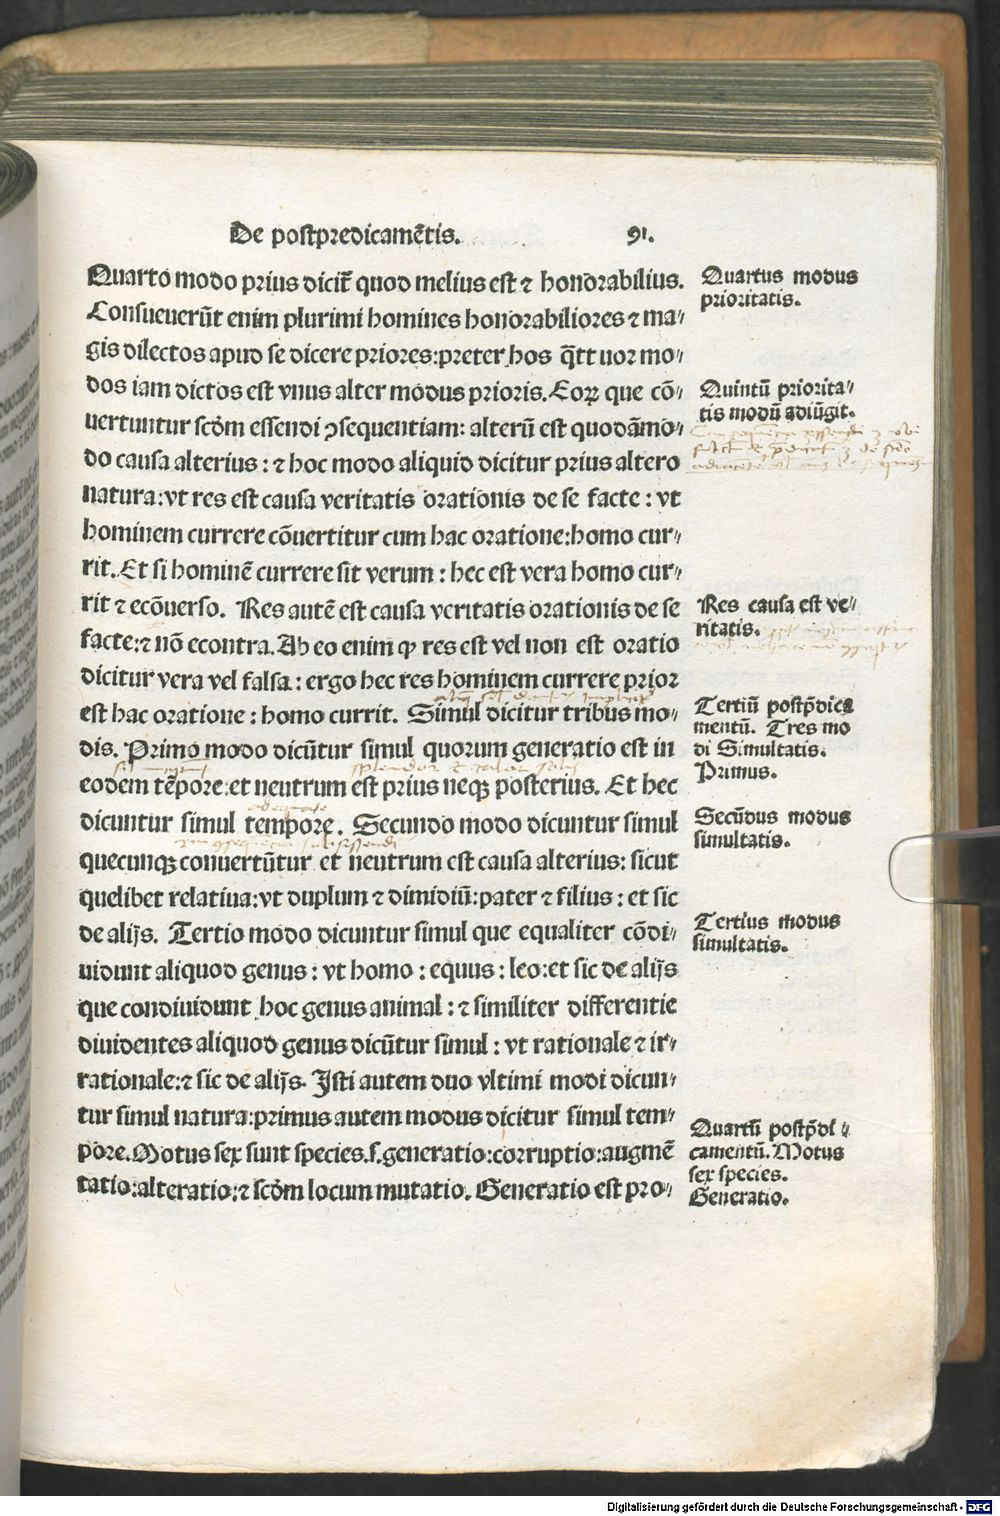 De postpredicamētis.
91.
Quarto modo prius dicit̄ quod melius est ⁊ honorabilius.
Consueuerūt enim plurimi homines honorabiliores ⁊ ma⸗
gis dilectos apud se dicere priores:preter hos q̄ttuor mo⸗
dos iam dictos est vnus alter modus prioris. Eoꝝ que cō⸗
uertuntur scd̄m essendi ꝯsequentiam: alterū est quodāmo⸗
do causa alterius: ⁊ hoc modo aliquid dicitur prius altero
natura:vt res est causa veritatis orationis de se facte: vt
hominem currere cōuertitur cum hac oratione:homo cur⸗
rit. Et si hominē currere sit verum: hec est vera homo cur⸗
rit ⁊ ecōuerso. Res autē est causa veritatis orationis de se
facte:⁊ nō econtra. Ab eo enim ꝙ res est vel non est oratio
dicitur vera vel falsa: ergo hec res hominem currere prior
est hac oratione: homo currit. Simul dicitur tribus mo⸗
dis. Primo modo dicūtur simul quorum generatio est in
eodem tēpore:et neutrum est prius neqꝫ posterius. Et hec
dicuntur simul tempore. Secundo modo dicuntur simul
quecunqꝫ conuertūtur et neutrum est causa alterius: sicut
quelibet relatiua:vt duplum ⁊ dimidiū:pater ⁊ filius: et sic
de alijs. Tertio modo dicuntur simul que equaliter cōdi⸗
uidunt aliquod genus: vt homo: equus: leo:et sic de alijs
que condiuidunt hoc genus animal: ⁊ similiter differentie
diuidentes aliquod genus dicūtur simul: vt rationale ⁊ ir⸗
rationale:⁊ sic de alijs. Isti autem duo vltimi modi dicun⸗
tur simul natura:primus autem modus dicitur simul tem⸗
pore. Motus sex sunt species.s.generatio:corruptio:augmē
tatio:alteratio:⁊ scd̄m locum mutatio. Generatio est pro⸗
Quartus modus
prioritatis.
Quintū priorita⸗
tis modū adiūgit.
Res causa est ve⸗
ritatis.
Tertiū postp̄dica
mentū. Tres mo
di Simultatis.
Primus.
Secūdus modus
simultatis.
Tertius modus
simultatis.
Quartū postp̄di⸗
camentū. Motus
sex species.
Generatio.
Digitalisierung gefördert durch die Deutsche Forschungsgemeinschaft - DFG